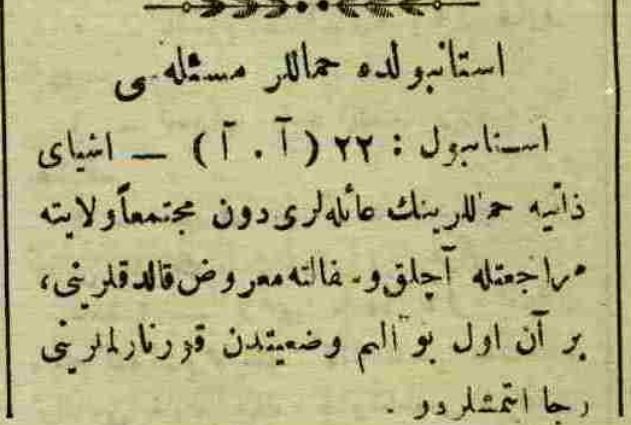 استانبولده حماللر مسئله‌سی
استانبول : ٢٢ ( آ . آ ) — اشیای
ذاتیه حماللرینك عائله‌لری دون مجتمعاً ولایته
مراجعتله آچلق و سفالته معروض قالدقلرینی،
بر آن اول بو الیم وضعیتدن قورتارلملرینی
رجا ایتمشلردر .